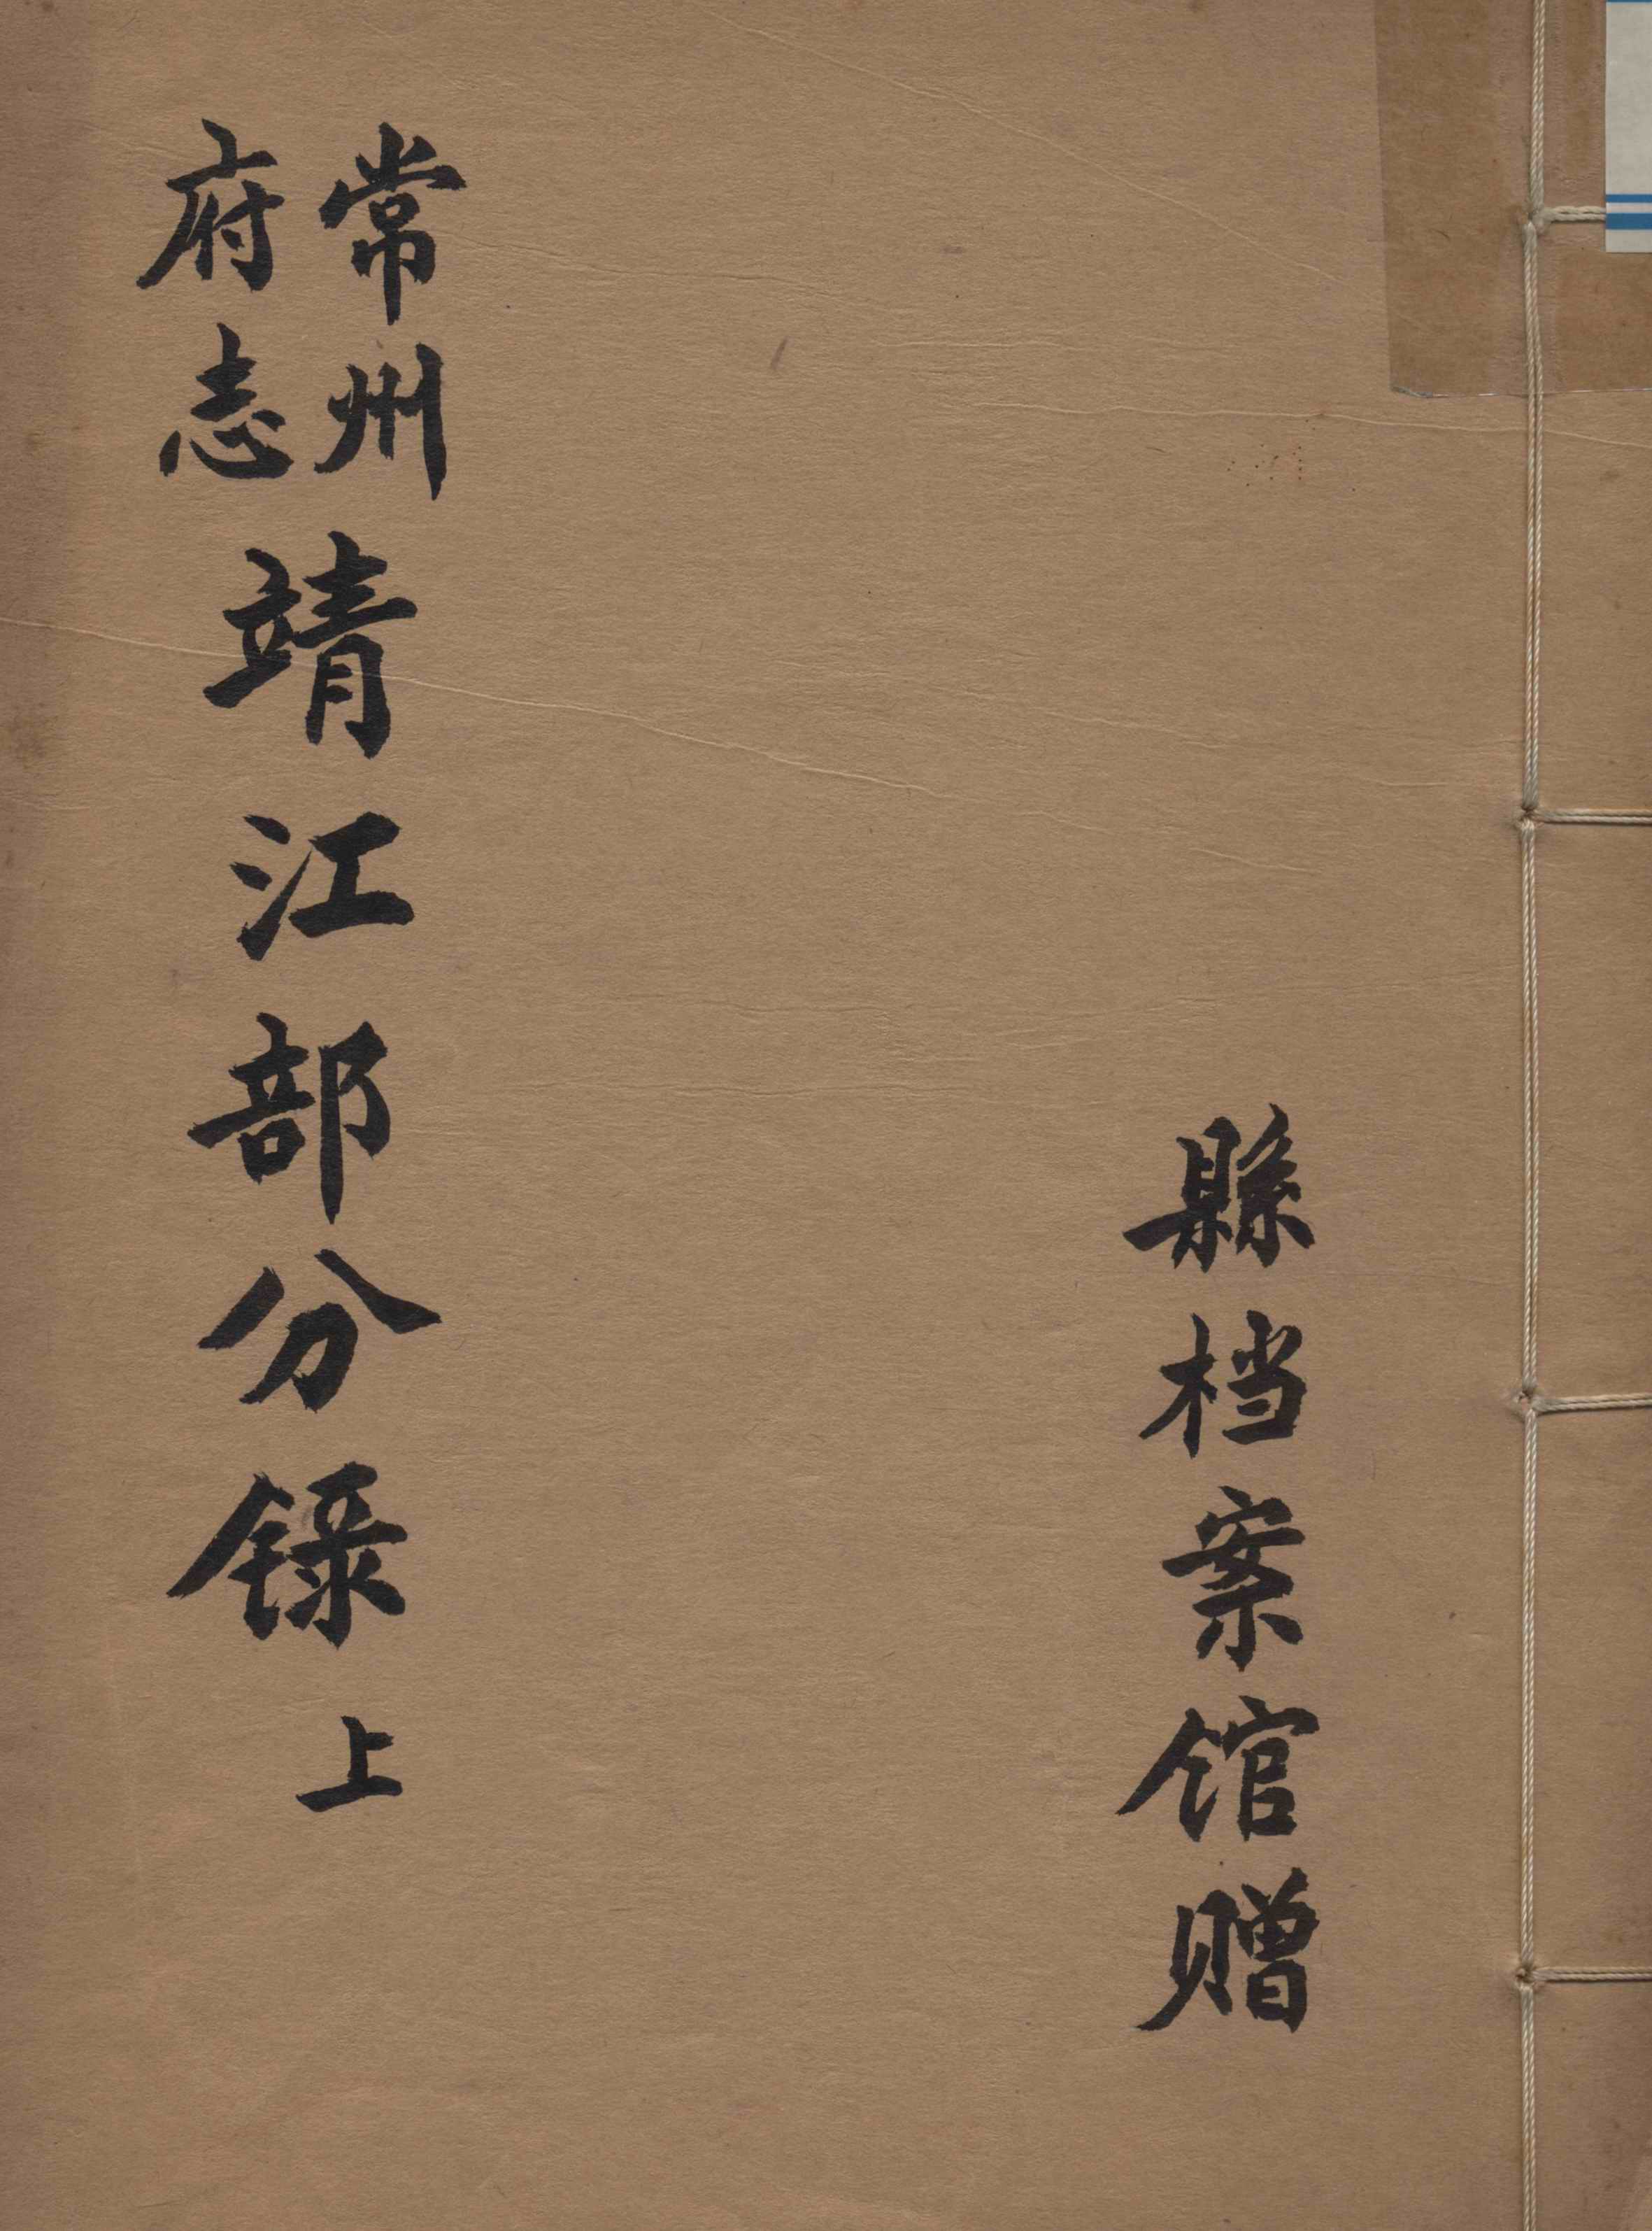 縣档案馆赠
常州
府志
靖江部分録上